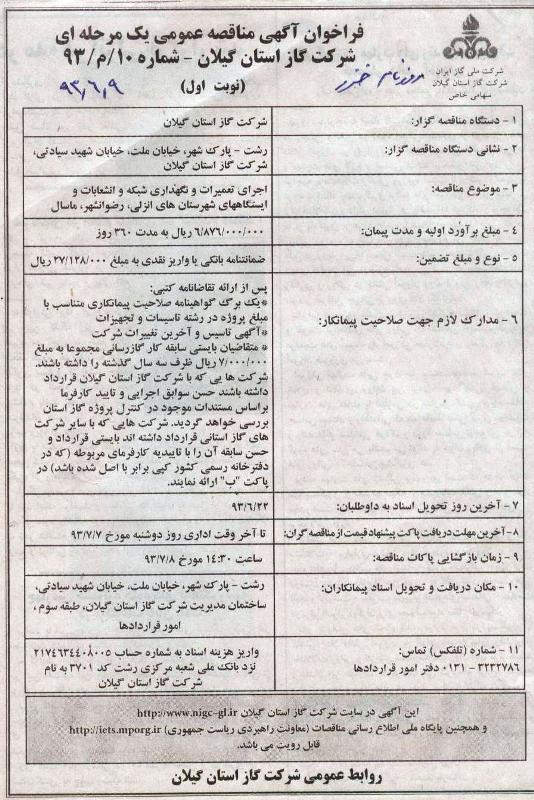 فراخوان آگهی مناقصه عمومی یک مرحله ای
شرکت گاز استان گیلان - شماره ۱۰/م/۹۳
(نوبت اول)
۹۳,۶,۹
روزنامه خزر
شرکت ملی گاز ایران
شرکت گاز استان گیلان
سهامی خاص
۱ - دستگاه مناقصه گزار:
شرکت گاز استان گیلان
۲ - نشانی دستگاه مناقصه گزار:
رشت - پارک شهر، خیابان ملت، خیابان شهید سیادتی،
شرکت گاز استان گیلان
۳ - موضوع مناقصه:
اجرای تعمیرات و نگهداری شبکه و انشعابات و
ایستگاههای شهرستان های انزلی، رضوانشهر، ماسال
۴ - مبلغ برآورد اولیه و مدت پیمان:
۶/۸۷۶/۰۰۰/۰۰۰ ریال به مدت ۳۶۰ روز
۵ - نوع و مبلغ تضمین:
ضمانتنامه بانکی یا واریز نقدی به مبلغ ۲۷/۱۲۸/۰۰۰ ریال
۶ - مدارک لازم جهت صلاحیت پیمانکار:
پس از ارائه تقاضانامه کتبی:
*یک برگ گواهینامه صلاحیت پیمانکاری متناسب با
مبلغ پروژه در رشته تاسیسات و تجهیزات
*آگهی تاسیس و آخرین تغییرات شرکت
* متقاضیان بایستی سابقه کار گازرسانی مجموعا به مبلغ
۷/۰۰۰/۰۰۰ ریال ظرف سه سال گذشته را داشته باشند.
شرکت هایی که با شرکت گاز استان گیلان قرارداد
داشته باشند حسن سوابق اجرایی و تایید کارفرما
براساس مستندات موجود در کنترل پروژه گاز استان
بررسی خواهد گردید. شرکت هایی که با سایر شرکت
های گاز استانی قرارداد داشته اند بایستی قرارداد و
حسن سابقه آن را با تاییدیه کارفرمای مربوطه (که در
دفترخانه رسمی کشور کپی برابر با اصل شده باشد) در
پاکت "ب" ارائه نمایند.
۷ - آخرین روز تحویل اسناد به داوطلبان:
۹۳/۶/۲۲
۸- آخرین مهلت دریافت پاکت پیشنهاد قیمت از مناقصه گران:
تا آخر وقت اداری روز دوشنبه مورخ ۹۳/۷/۷
۹ - زمان بازگشایی پاکات مناقصه:
ساعت ۱۴:۳۰ مورخ ۹۳/۷/۸
۱۰ - مکان دریافت و تحویل اسناد پیمانکاران:
رشت - پارک شهر، خیابان ملت، خیابان شهید سیادتی،
ساختمان مدیریت شرکت گاز استان گیلان، طبقه سوم ،
امور قراردادها
۱۱ - شماره (تلفکس) تماس:
۳۲۳۲۷۸۶ - ۰۱۳۱ دفتر امور قراردادها
واریز هزینه اسناد به شماره حساب ۲۱۷۴۶۳۴۴۰۸۰۰۵
نزد بانک ملی شعبه مرکزی رشت کد ۳۷۰۱ به نام
شرکت گاز استان گیلان
این آگهی در سایت شرکت گاز استان گیلان http://www.nigc-gl.ir
و همچنین پایگاه ملی اطلاع رسانی مناقصات (معاونت راهبردی ریاست جمهوری) http://iets.mporg.ir
قابل رویت می باشد.
روابط عمومی شرکت گاز استان گیلان